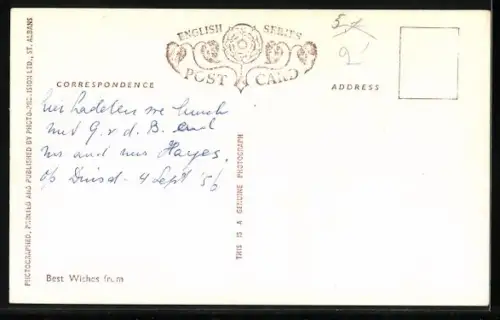 ENGLISH SERIES
POST CARD
5
2'
CORRESPONDENCE
ADDRESS
hier hadden we lunch
met G. v. d. B. and
mr and mrs Hayes.
o/p Dinsd- 4 Sept '56
PHOTOGRAPHED, PRINTED AND PUBLISHED BY PHOTO-PRECISION LTD., ST. ALBANS
THIS IS A GENUINE PHOTOGRAPH
Best Wishes from